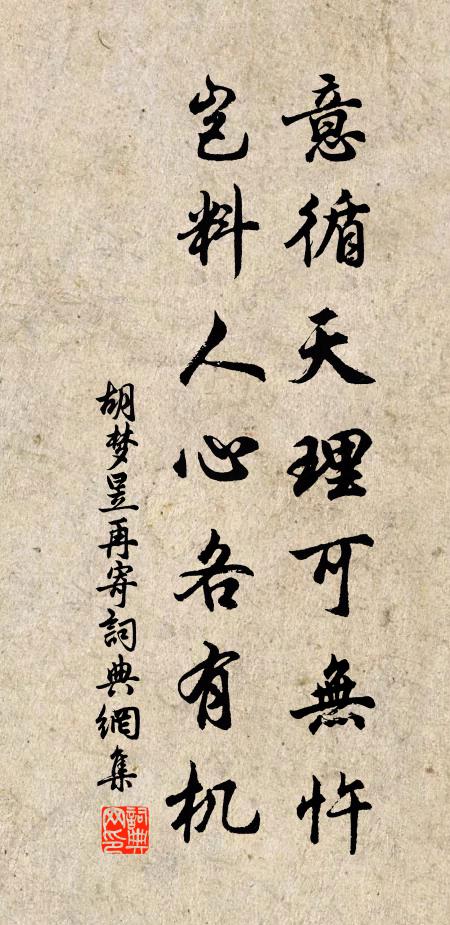 意循天理可無忤
岂料人心各有机
胡梦昱再寄詞典網集
詞典网印